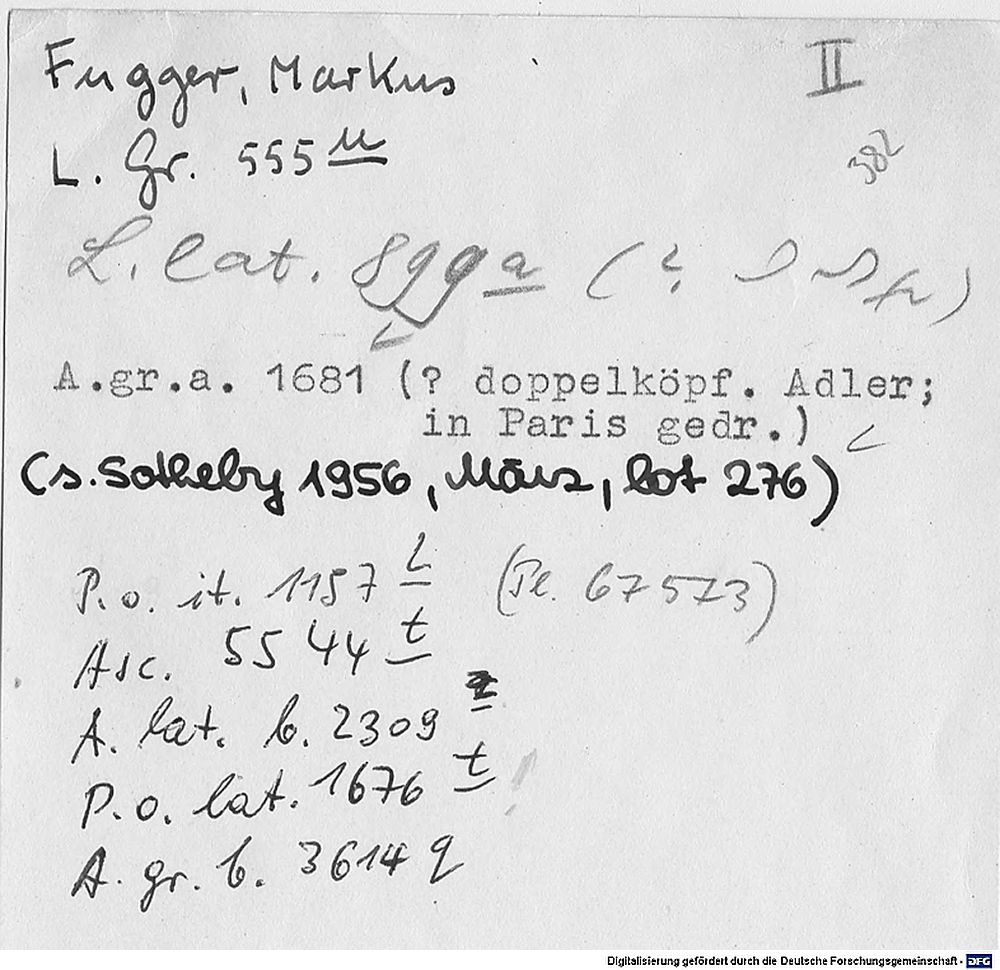 Fugger, Markus
II
L. Gr. 555 u
382
L. lat. 899 a (?
A.gr.a. 1681 (? doppelköpf. Adler;
in Paris gedr.)
(s. Sotheby 1956, März, lot 276)
P. o. it. 1157 l (Pl. 67573)
Asc. 5544 t
A. lat. b. 2309
P. o. lat. 1676 t !
A. gr. b. 3614 q
Digitalisierung gefördert durch die Deutsche Forschungsgemeinschaft - DFG